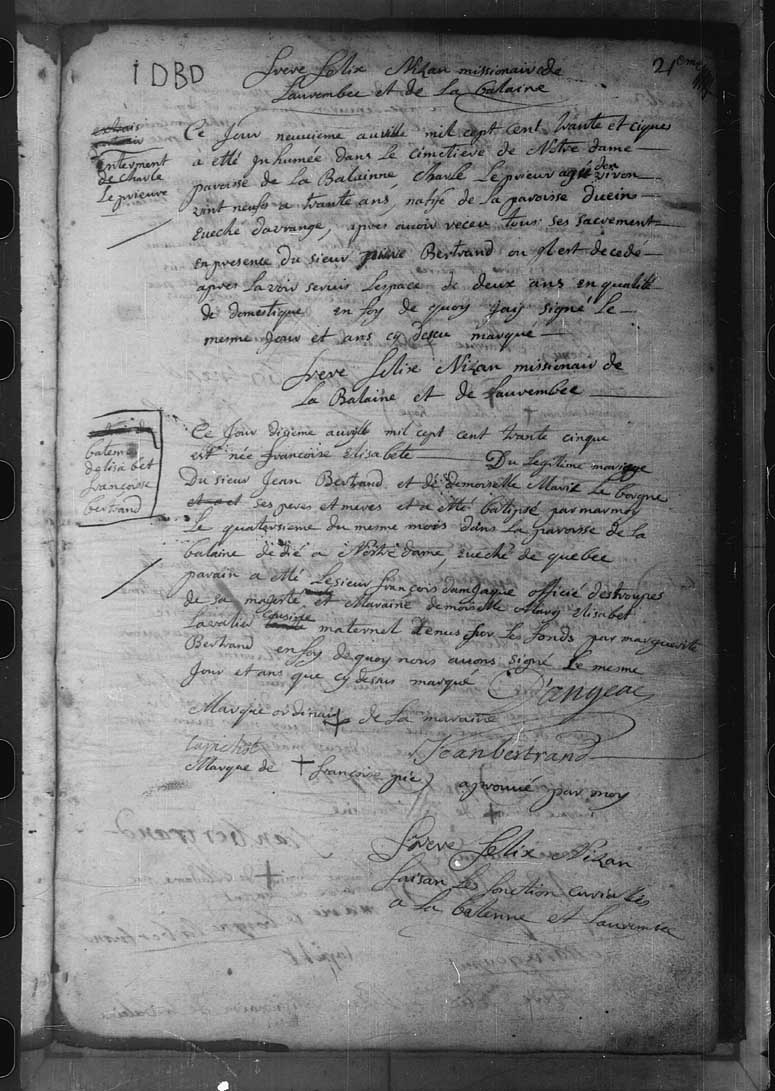 1 DBD
frere felix Nizan missionaire de
Laurembec et de la balaine
21eme
Enterment
de Charle
Le prieure
Ce Jour neuvieme avrille mil cept cent trante et cinque
a etté Jnhumée dans Le cimetiere de Notre dame
paroisse de La Balainne, Charle Le prieur agée den viron
vint neufs a trante ans, natif de la paroisse ducein
Eveché davrange, apres avoir receu tous ses sacrement
en presence du sieur pierre Bertrand ou jl est decede
apres Lavoir servis Lespace de deux ans en qualité
de domestique en foy de quoy Jaÿ signé Le
mesme Jour et ans cy desu marqué
frere felix Nizan missionair de
La Balaine et de Laurembec
batem
delisabet
francoisse
bertrand
Ce Jour dixieme avrille mil cept cent trante cinque
est née francoise Elisabete Du Legitime mariage
Du sieur Jean Bertrand et de demoiselle Marie Le borgne
ses peres et meres et a etté batissé par moy
Le quatorsieme du mesme mois dans La paroisse de la
balaine dedié a Nostre dame, eveché de quebec
parain a etté Le sieur françois dangaque officié destroupes
de sa majesté et Maraine demoiselle Mary Elisabet
Lavalier cousine maternel tenus sur Les fonds par marguerite
Bertrand en foy de quoy nous avons signé Le mesme
Jour et ans que cy desus marqué Dangeac
Marque ordinair + de La maraine
lapichot Jean bertrand
Marque de + francoise pic aprouvé par moy
frere felix Nizan
faisan Les fonction curialles
a La balenne et Laurembec